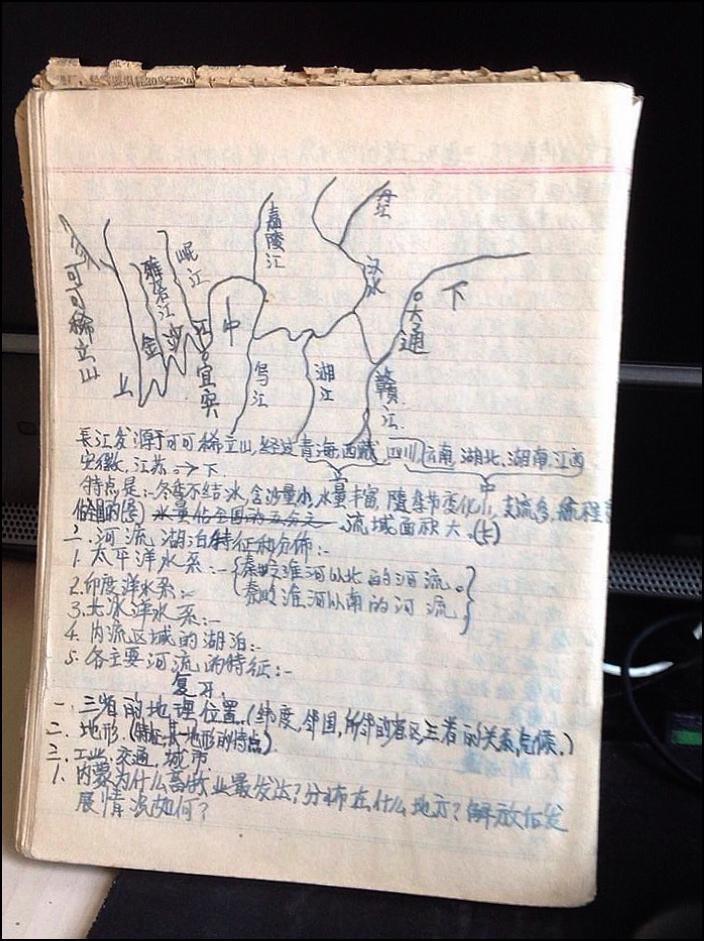 可可稀立山
上
雅砻江
金沙江
岷江
宜宾
中
嘉陵江
乌江
湘江
汉水
丹江
赣江
大通
下
長江发源于可可稀立山,经过青海,西藏,四川,云南,湖北,湖南,江西
安徽,江苏→下 上 中
特点是:-冬季不结冰,含沙量小,水量丰富,随季节变化小,支流多,流程
水量佔全国的五分之一.流域面积大.
二.河流湖泊特征和分佈:-
1.太平洋水系:-{秦岭淮河以北的河流。
秦岭淮河以南的河流}
2.印度洋水系:-
3.北冰洋水系:-
4.内流区域的湖泊:-
5.各主要河流的特征:-
复习.
一.三省的地理位置.(纬度,邻国,所邻的省区,三省的关系,气候.)
二.地形.(特征,其地形的特点).
三.工业,交通,城市.
1.内蒙为什么畜牧业最发达?分佈在什么地方?解放后发
展情况如何?